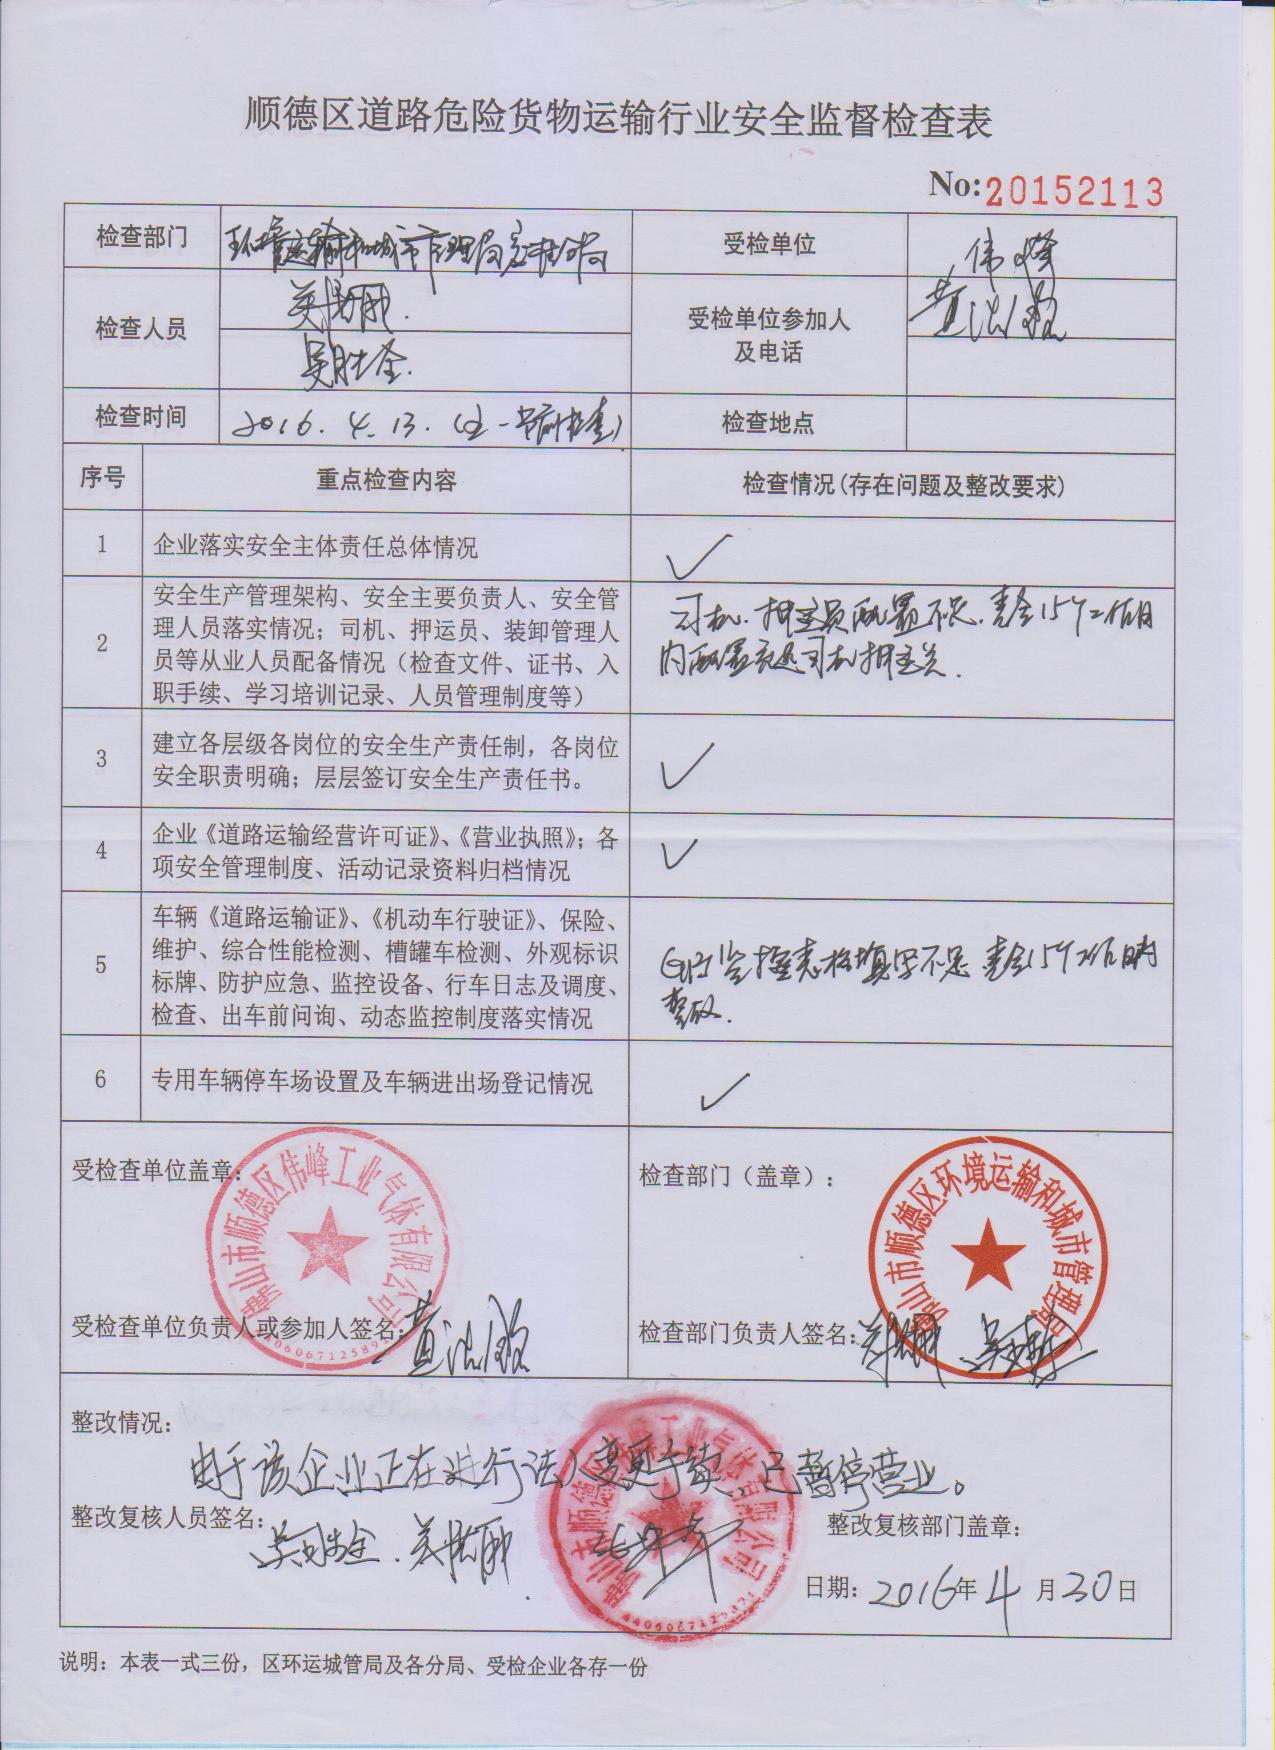 顺德区道路危险货物运输行业安全监督检查表
No:20152113
检查部门
环境运输和城市管理局
受检单位
伟峰
检查人员
受检单位参加人
及电话
检查时间
2016.4.13.
检查地点
序号
重点检查内容
检查情况(存在问题及整改要求)
1
企业落实安全主体责任总体情况
✓
2
安全生产管理架构、安全主要负责人、安全管
理人员落实情况；司机、押运员、装卸管理人
员等从业人员配备情况（检查文件、证书、入
职手续、学习培训记录、人员管理制度等）
司机.押运员配置不足.责令15个工作日
内配置充足司机押运员.
3
建立各层级各岗位的安全生产责任制，各岗位
安全职责明确；层层签订安全生产责任书。
✓
4
企业《道路运输经营许可证》、《营业执照》；各
项安全管理制度、活动记录资料归档情况
✓
5
车辆《道路运输证》、《机动车行驶证》、保险、
维护、综合性能检测、槽罐车检测、外观标识
标牌、防护应急、监控设备、行车日志及调度、
检查、出车前问询、动态监控制度落实情况
监控表格填写不足.责令15个工作日内
整改.
6
专用车辆停车场设置及车辆进出场登记情况
✓
受检查单位盖章：
佛山市顺德区伟峰工业气体有限公司
受检查单位负责人或参加人签名：
检查部门（盖章）：
佛山市顺德区环境运输和城市管理局
检查部门负责人签名：
整改情况：
由于该企业正在进行法人变更手续，已暂停营业。
整改复核人员签名：
整改复核部门盖章：
日期：2016年4月30日
说明：本表一式三份，区环运城管局及各分局、受检企业各存一份